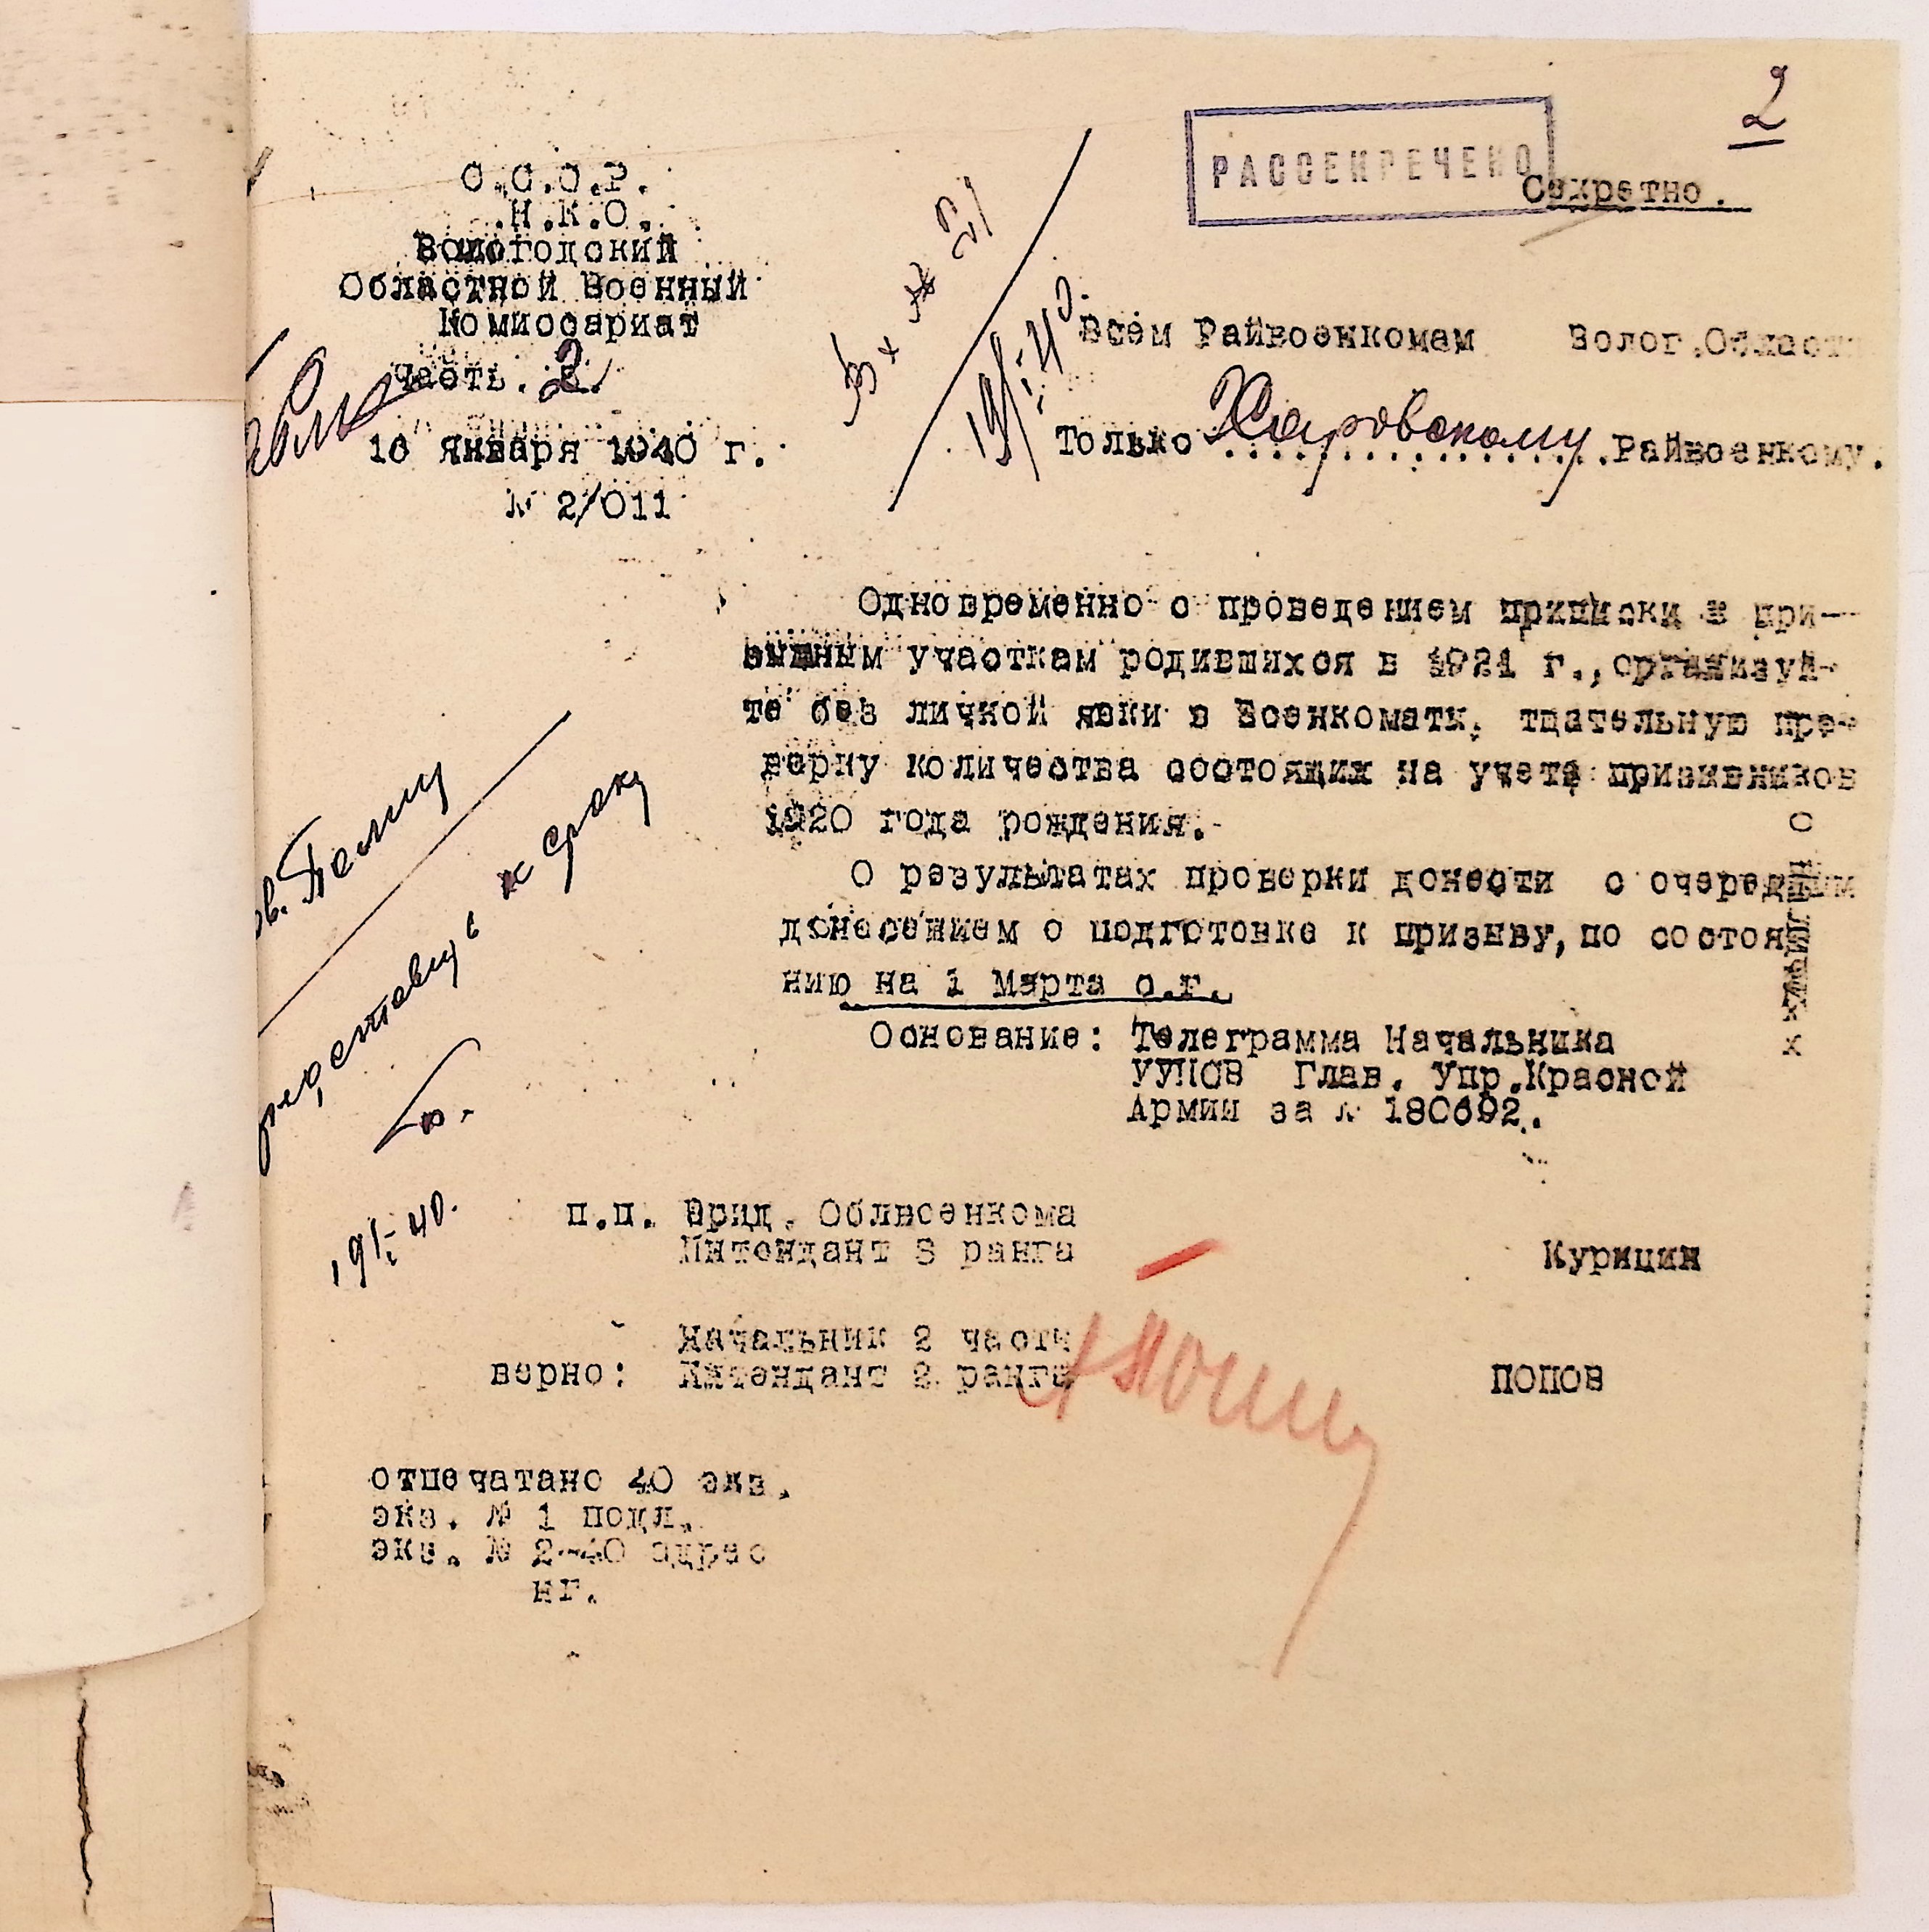 2
РАССЕКРЕЧЕНО
Секретно.
С.С.С.Р.
Н.К.О.
Вологодский
Областной Военный
Комиссариат
Часть. 2.
16 января 1940 г.
№ 2/011
19/I-40.
Всем Райвоенкомам Волог.Област
Только Харовскому Райвоенкому.
Одновременно с проведением приписки к при-
зывным участкам родившихся в 1921 г., организуй-
те без личной явки в Военкоматы, тщательную про-
верку количества состоящих на учете призывников
1920 года рождения.-
О результатах проверки донести с очередным
донесением о подготовке к призыву, по состоя
нию на 1 Марта с.г.
Основание: Телеграмма Начальника
УУПСВ Глав. Упр.Красной
Армии за № 180692.
к сроку
19/I-40.
п.п. Врид. Облвоенкома
Интендант 3 ранга Курицин
Начальник 2 части
верно: Интендант 2 ранга ПОПОВ
отпечатано 40 экз.
экз. № 1 подл.
экз. № 2-40 адрес
нг.